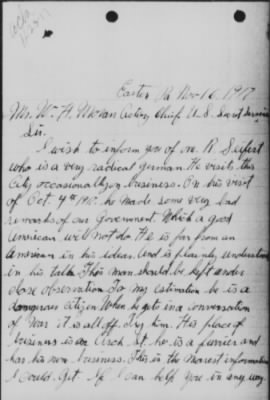 Easton Pa Nov 16, 1917
Mr. W. H. Moran Acting Chief U. S. Secret Service
Sir.
I wish to inform you of one R Seifert
who is a very radical german. He visits this
City occasionally on business. On his visit
of Oct. 4th 1917. he made some very bad
remarks of our Government Which a good
American will not do. He is far from an
American in his ideas. And is plainly understood
in his talk. This man should be kept under
close observation. In my estimation he is a
dangerous citizen. When he gets in a conversation
of War it is all off. Try him. His place of
business is on Arch. St. he is a furrier and
has his own business. This is the nearest information
I could. Get. If I can help you in any way.